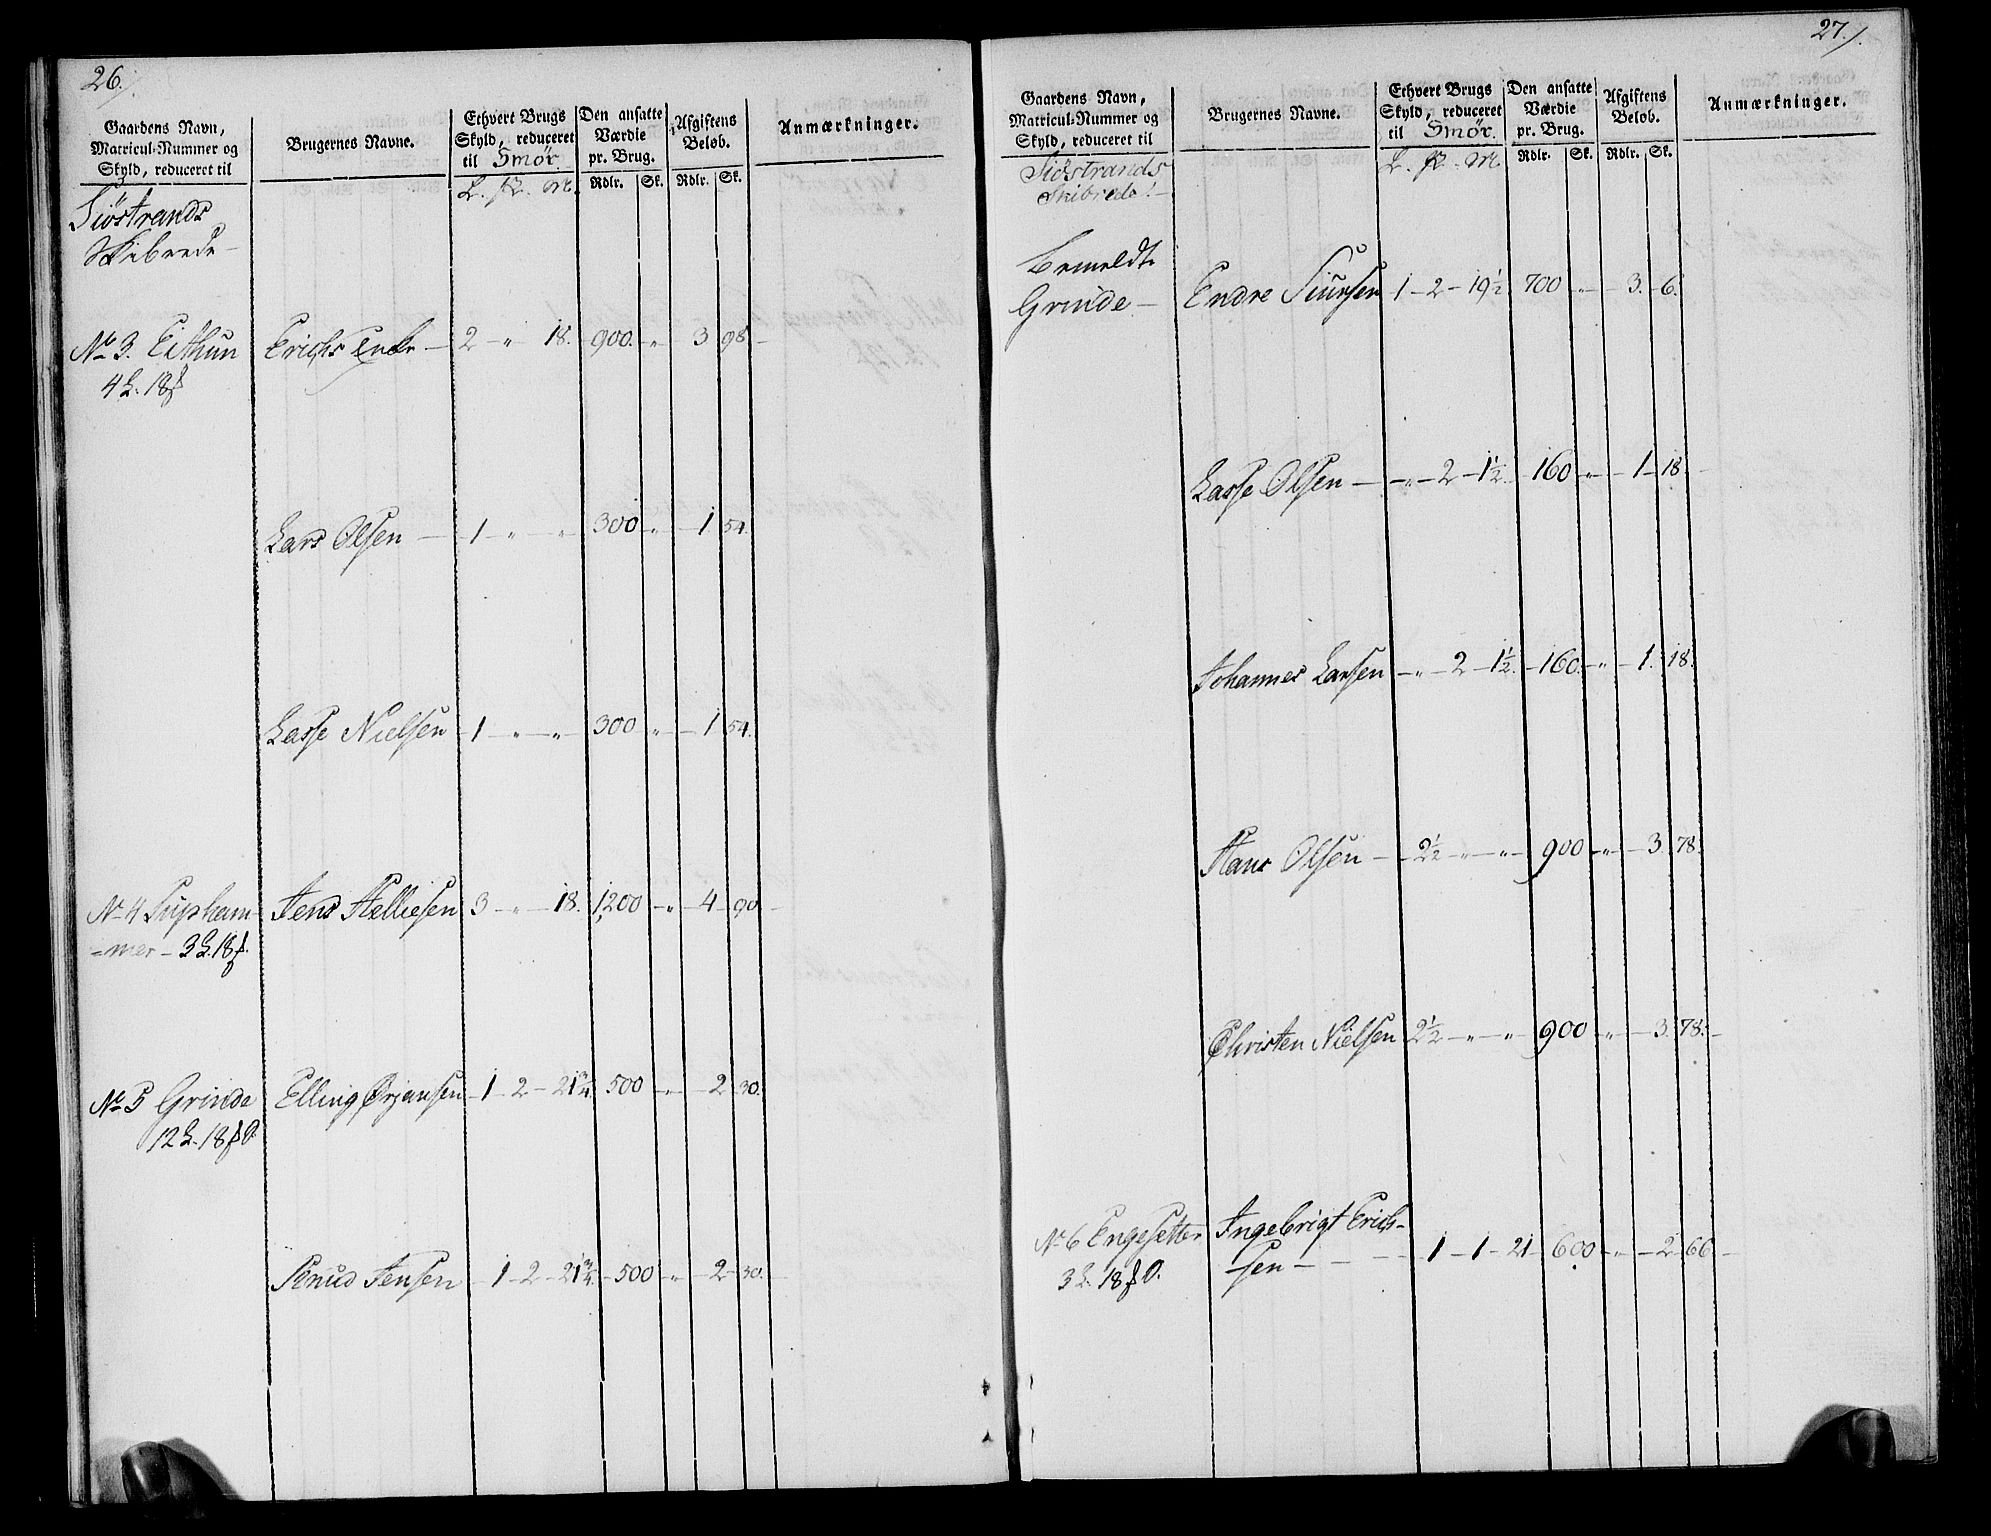 26./.
Gaardens Navn,
Matricul-Nummer og
Skyld, reduceret til
Brugernes Navne.
Ethvert Brugs
Skyld, reduceret
til Smør.
L. M.
Den ansatte
Værdie
pr. Brug.
Rdlr. Sk.
Afgiftens
Beløb.
Rdlr. Sk.
Anmærkninger.
Siöstrands
Skibrede
No 3. Eithun Erichs 2 " 18. 900. " 3 98
4 L. 18
Lars Olsen 1 " " 300 " 1 54.
Lasse Nielsen 1 " " 300 " 1 54.
No 4 Supham- Jens Helliesen 3 " 18. 1200 " 4 90
=mer 3 L. 18
No 5 Grinde Elling Ørjansen 1 2 21¾ 500 " 2 30.
12 L. 18
Knud Jensen 1 2 21¾ 500 " 2 30.
27./.
Gaardens Navn,
Matricul-Nummer og
Skyld, reduceret til
Brugernes Navne.
Ethvert Brugs
Skyld, reduceret
til Smør.
L. M.
Den ansatte
Værdie
pr. Brug.
Rdlr. Sk.
Afgiftens
Beløb.
Rdlr. Sk.
Anmærkninger.
Siöstrands
Skibrede!
Bemeldte
Grinde Endre Siursen 1 2 19½ 700 " 3. 6.
Lasse Olsen " 2 1½ 160 " 1 18
Johannes Larsen " 2 1½ 160. " 1. 18.
Hans Olsen 2½ " " 900 " 3. 78.
Christen Nielsen 2½ " " 900 " 3. 78.
No 6 Engesetter Ingebrigt Erich-
3 L. 18 sen 1 1 21 600 " 2 66